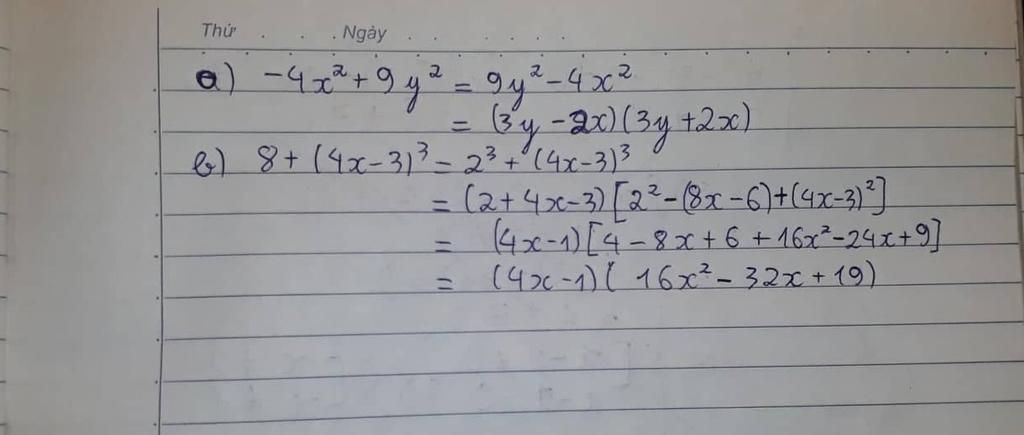 Thứ . . . . Ngày . . . . . . .
a) -4x² + 9y² = 9y² - 4x²
= (3y - 2x)(3y + 2x)
b) 8 + (4x - 3)³ = 2³ + (4x - 3)³
= (2 + 4x - 3)[2² - (8x - 6) + (4x - 3)²]
= (4x - 1)[4 - 8x + 6 + 16x² - 24x + 9]
= (4x - 1)(16x² - 32x + 19)